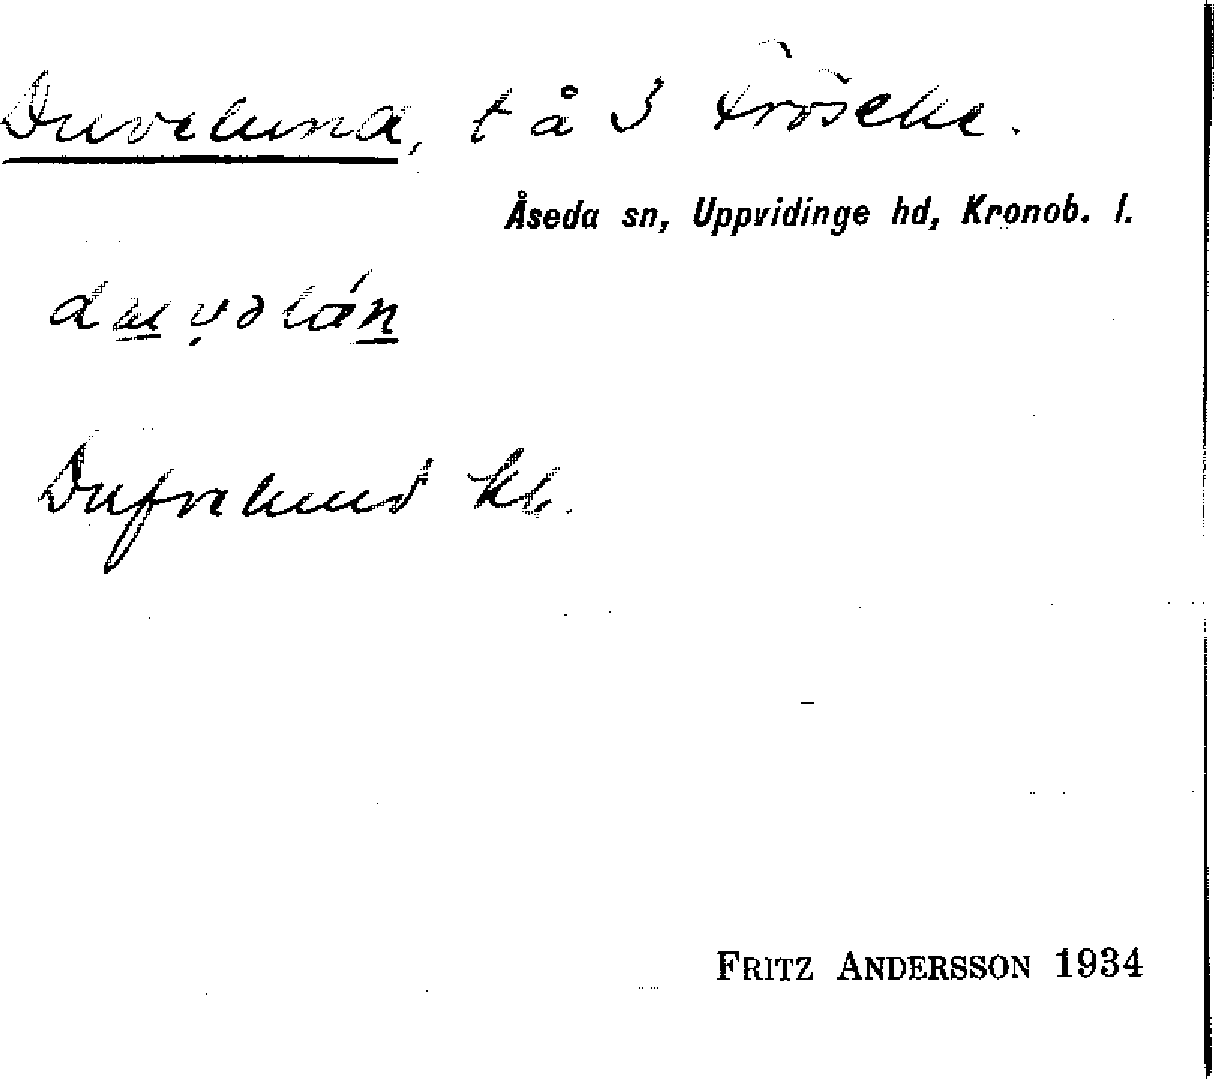 Duvelund, t å 3 Fröseke.
Åseda sn, Uppvidinge hd, Kronob. l.
Dufvelund kb.
FRITZ ANDERSSON 1934